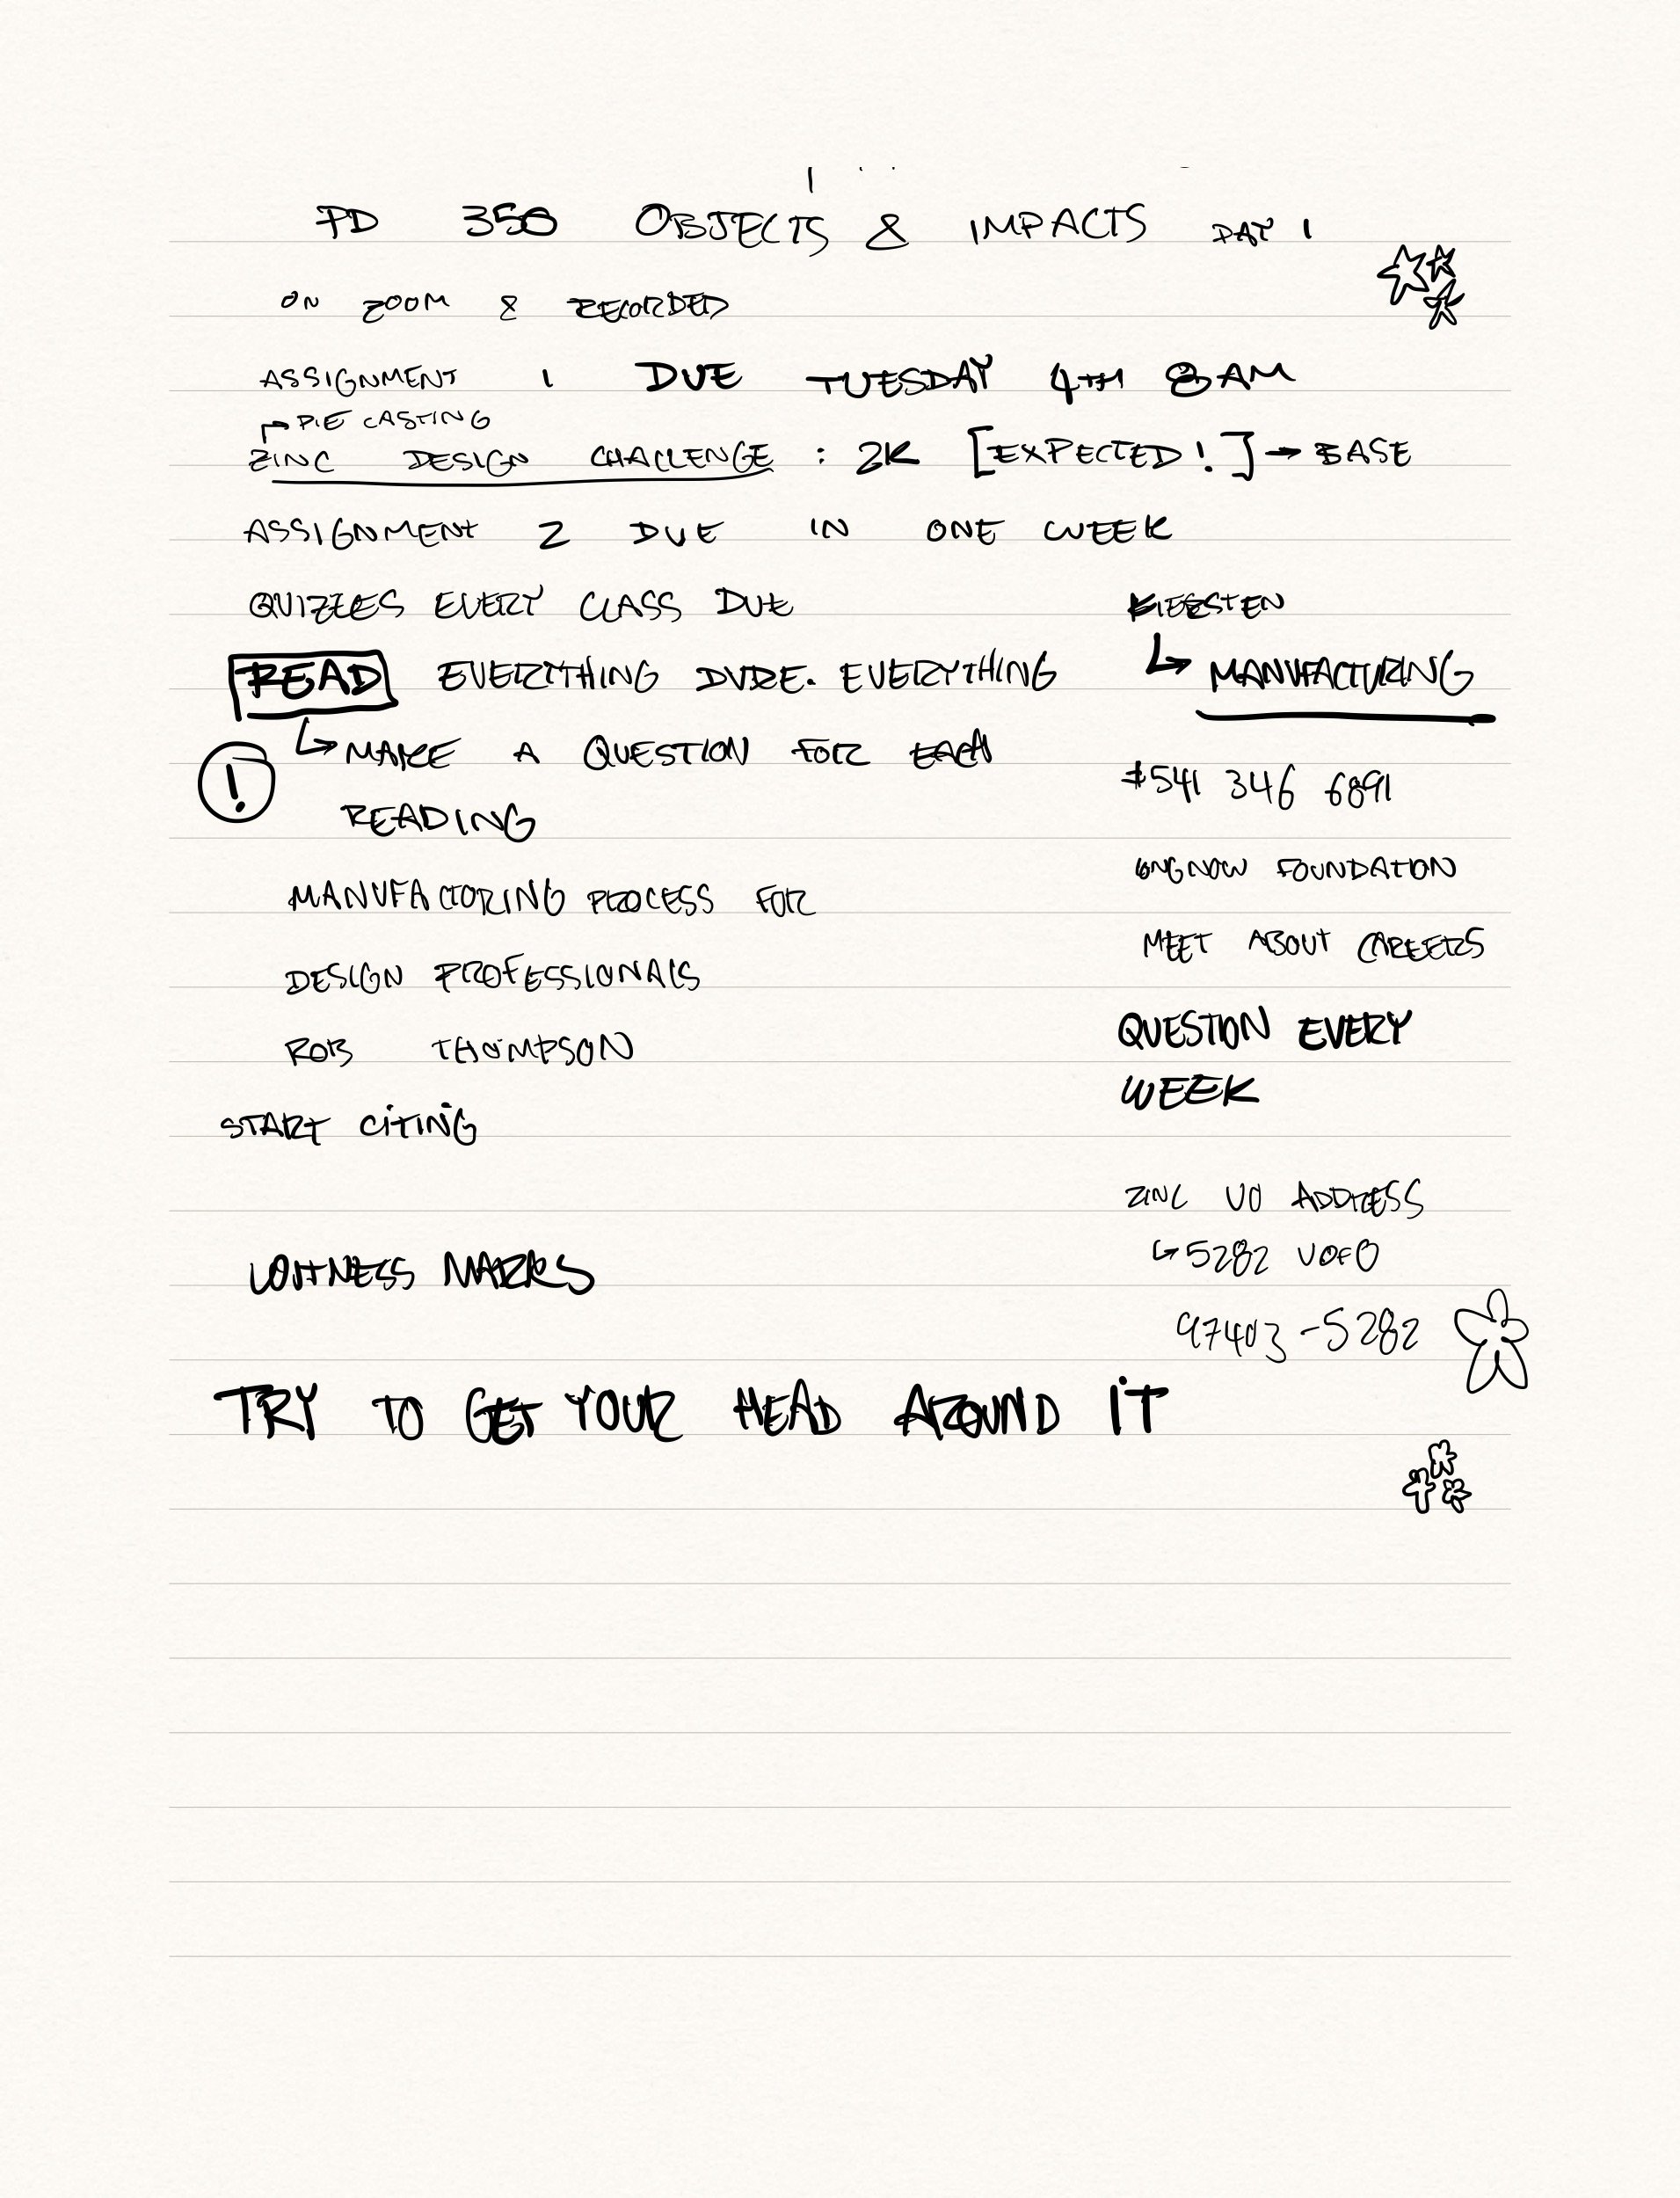 PD 350 OBJECTS & IMPACTS DAY 1
ON ZOOM & RECORDED
ASSIGNMENT 1 DUE TUESDAY 4TH 8AM
DIE CASTING
ZINC DESIGN CHALLENGE : 2K [EXPECTED!] → BASE
ASSIGNMENT 2 DUE IN ONE WEEK
QUIZZES EVERY CLASS DUE
READ EVERYTHING DUDE. EVERYTHING
! ↳ MAKE A QUESTION FOR EACH
READING
MANUFACTORING PROCESS FOR
DESIGN PROFESSIONALS
ROB THOMPSON
START CITING
WITNESS MARKS
KIERSTEN
↳ MANUFACTURING
#541 346 6891
LONGNOW FOUNDATION
MEET ABOUT CAREERS
QUESTION EVERY
WEEK
ZINC UO ADDRESS
↳ 5282 UOFO
97403-5282
TRY TO GET YOUR HEAD AROUND IT